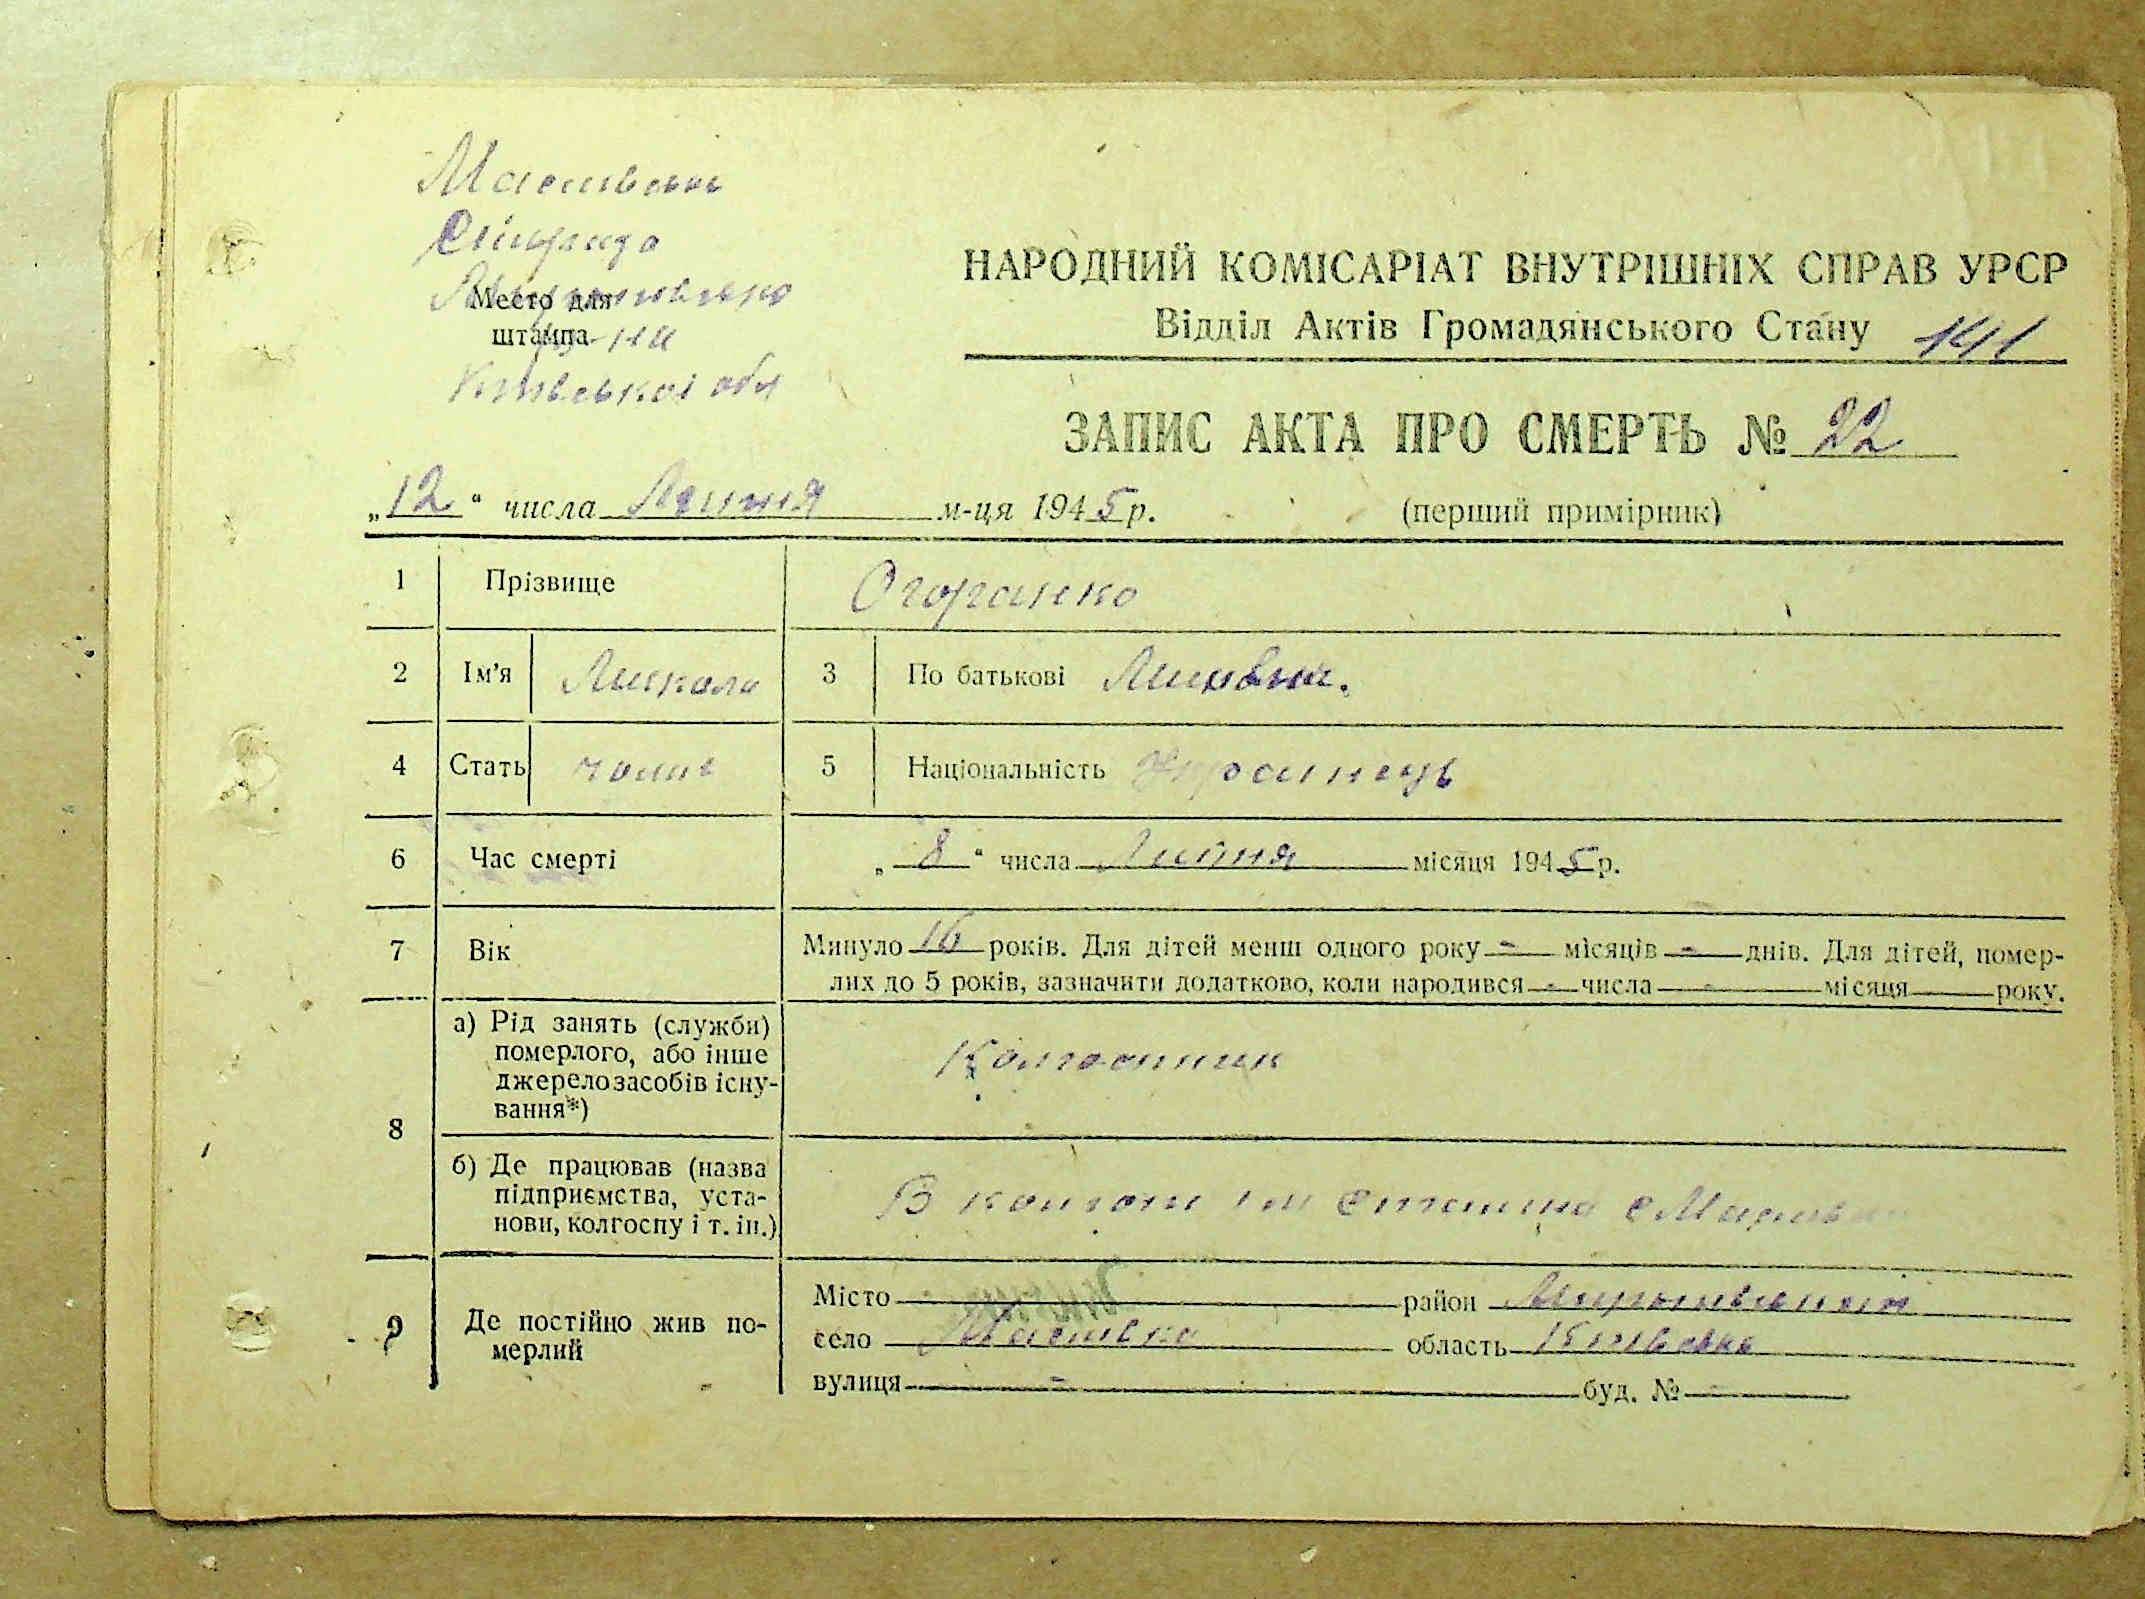 Масівська
Сільрада
Место для
штампа
р-на
Київської обл
НАРОДНИЙ КОМІСАРІАТ ВНУТРІШНІХ СПРАВ УРСР
Відділ Актів Громадянського Стану 141
ЗАПИС АКТА ПРО СМЕРТЬ № 22
„12“ числа Липня м-ця 1945 р. (перший примірник)
1 Прізвище
2 Ім'я Микола 3 По батькові
4 Стать чолов 5 Національність Украінець
6 Час смерті „8“ числа Липня місяця 1945 р.
7 Вік Минуло 16 років. Для дітей менш одного року - місяців - днів. Для дітей, помер-
лих до 5 років, зазначити додатково, коли народився - числа - місяця року.
8 а) Рід занять (служби)
померлого, або інше
джерело засобів існу-
вання*)
Колгоспник
б) Де працював (назва
підприємства, уста-
нови, колгоспу і т. ін.)
В колгоспі ім Сталіна с
9 Де постійно жив по-
мерлий
Місто район
село область Київська
вулиця - буд. № -